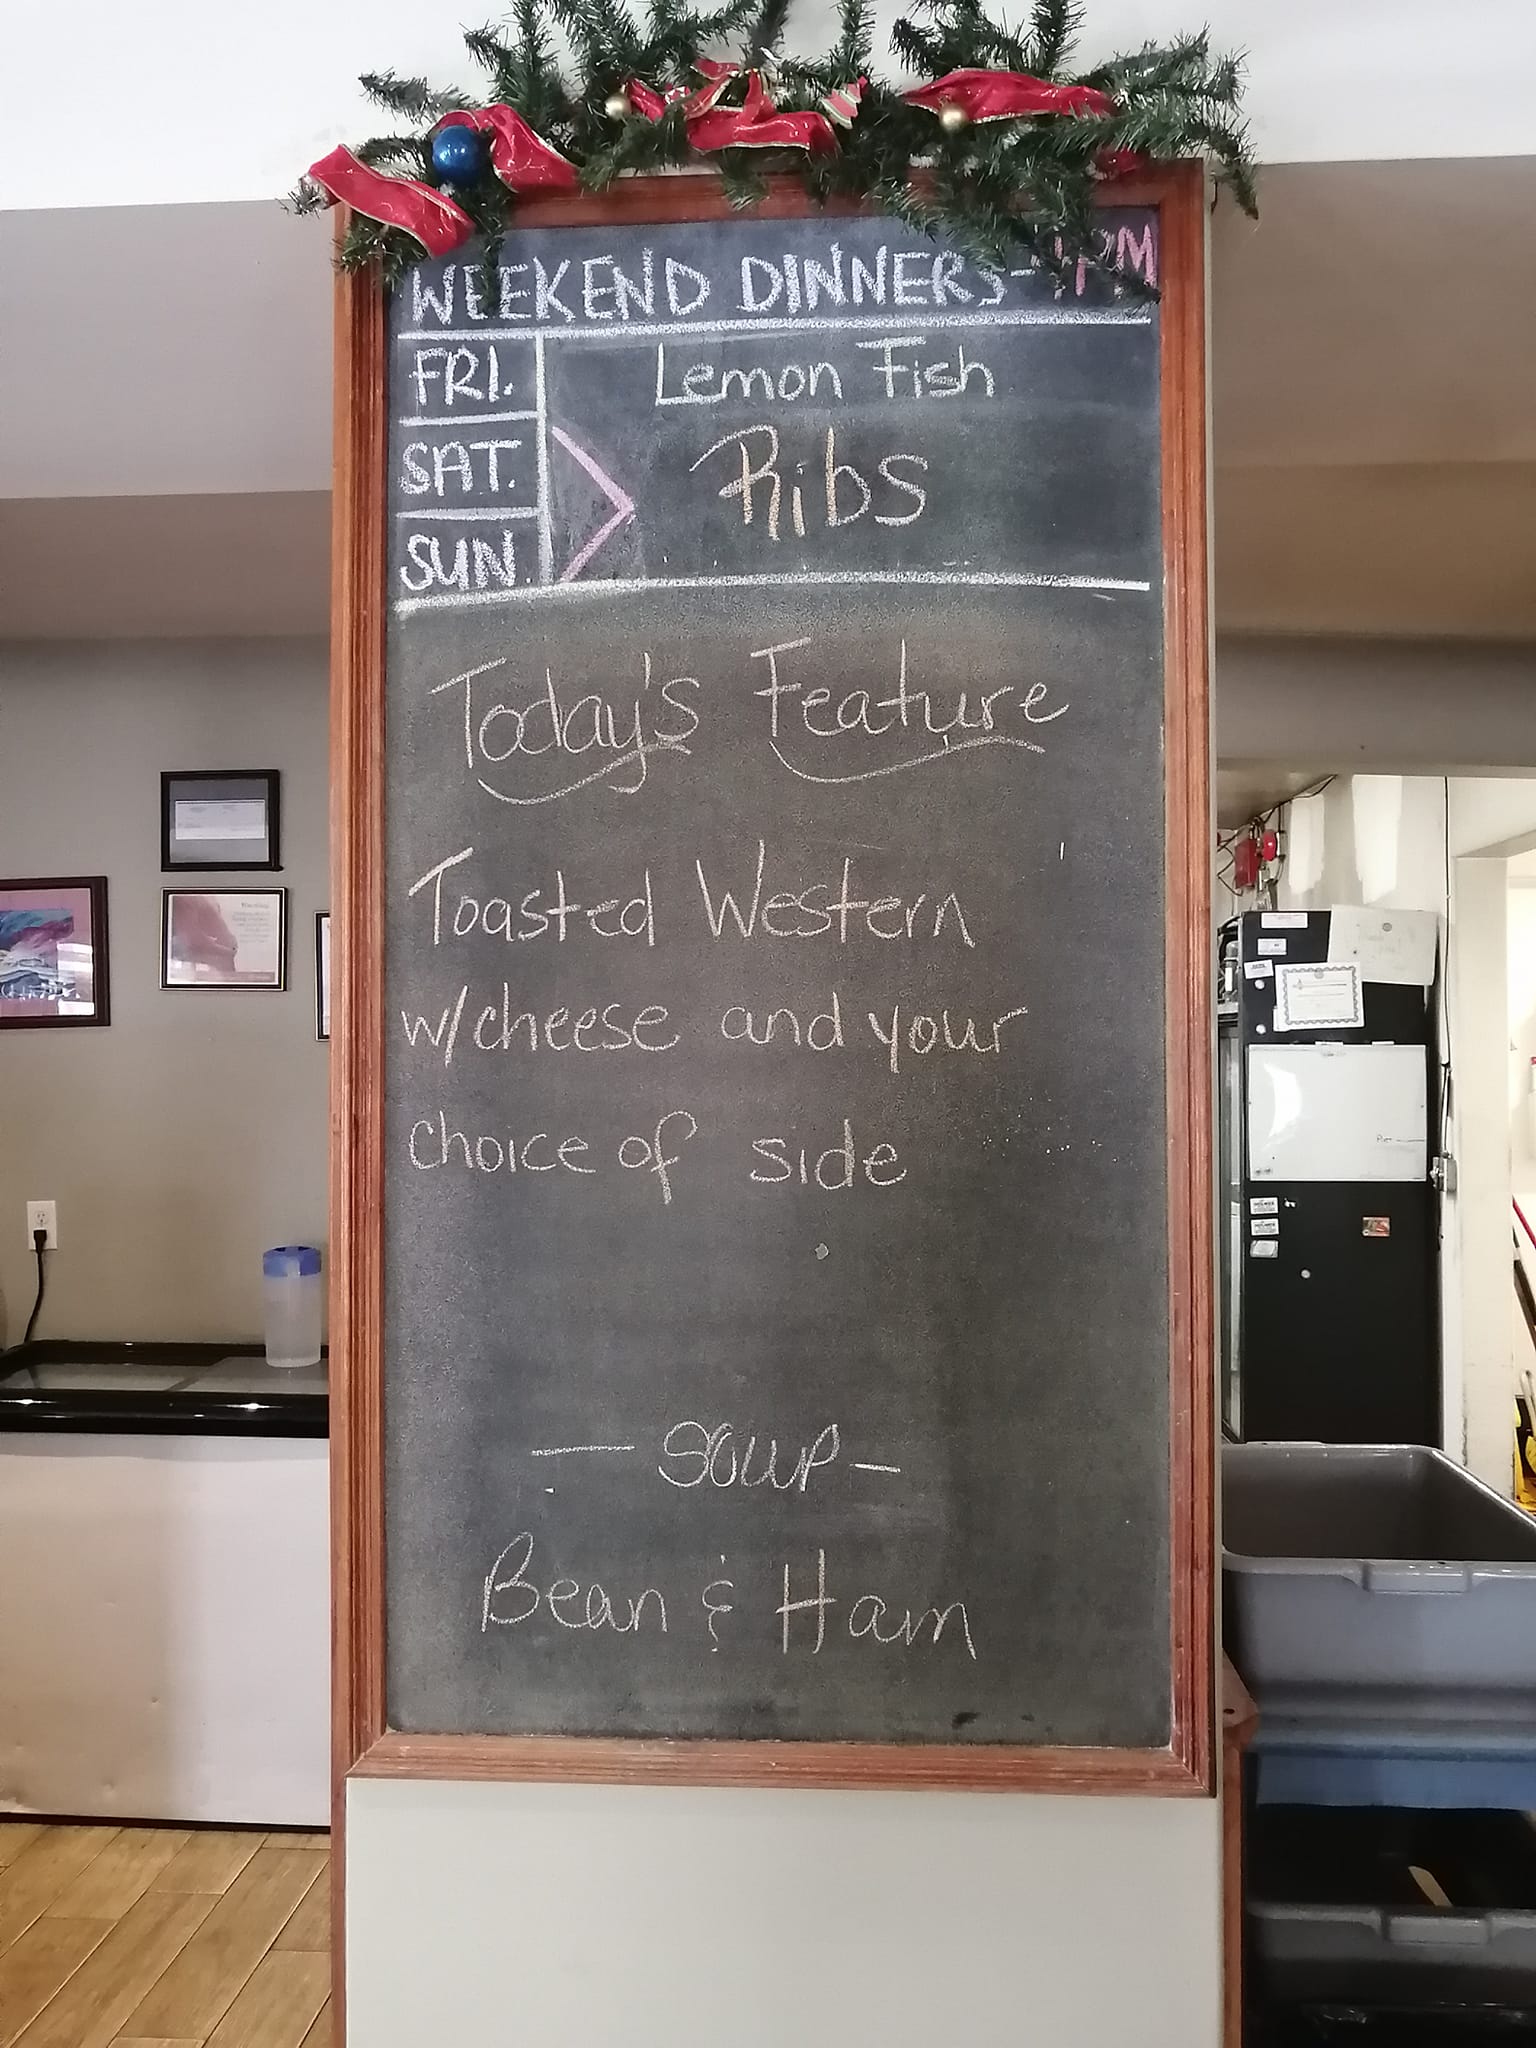 WEEKEND DINNERS-4PM
FRI. Lemon Fish
SAT. Ribs
SUN.
Today's Feature
Toasted Western
w/cheese and your
choice of side
- SOUP -
Bean & Ham